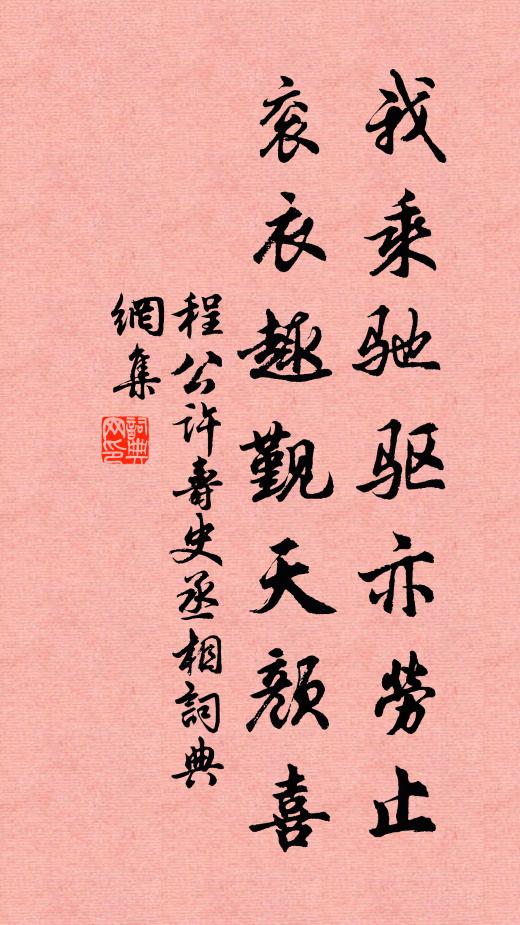 我乘驰驱亦劳止
衮衣趣觐天颜喜
程公许寿史丞相詞典
網集
詞典
网印